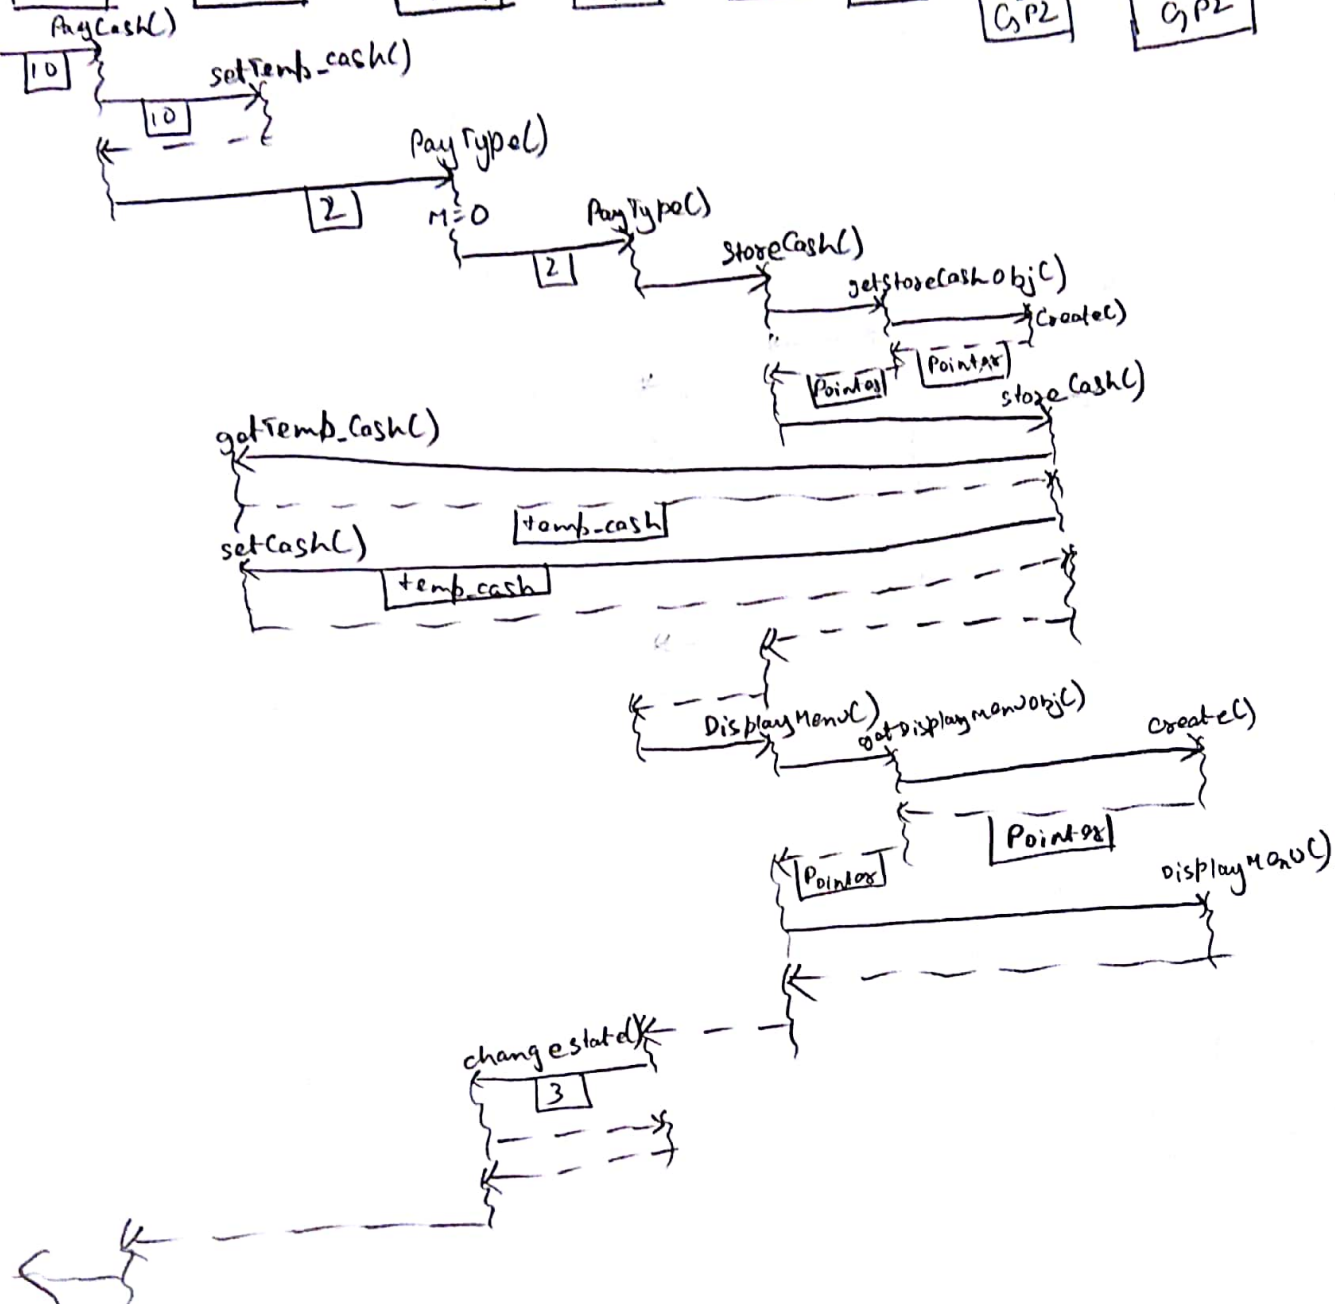 GP2
GP2
PayCash()
10
setTemp_cash()
10
PayType()
2
M=0
PayType()
2
StoreCash()
getStoreCashObj()
Create()
Pointer
Pointer
store Cash()
getTemp_Cash()
temp_cash
setCash()
temp_cash
DisplayMenu()
getDisplayMenuObj()
Create()
Pointer
Pointer
DisplayMenu()
changestate()
3